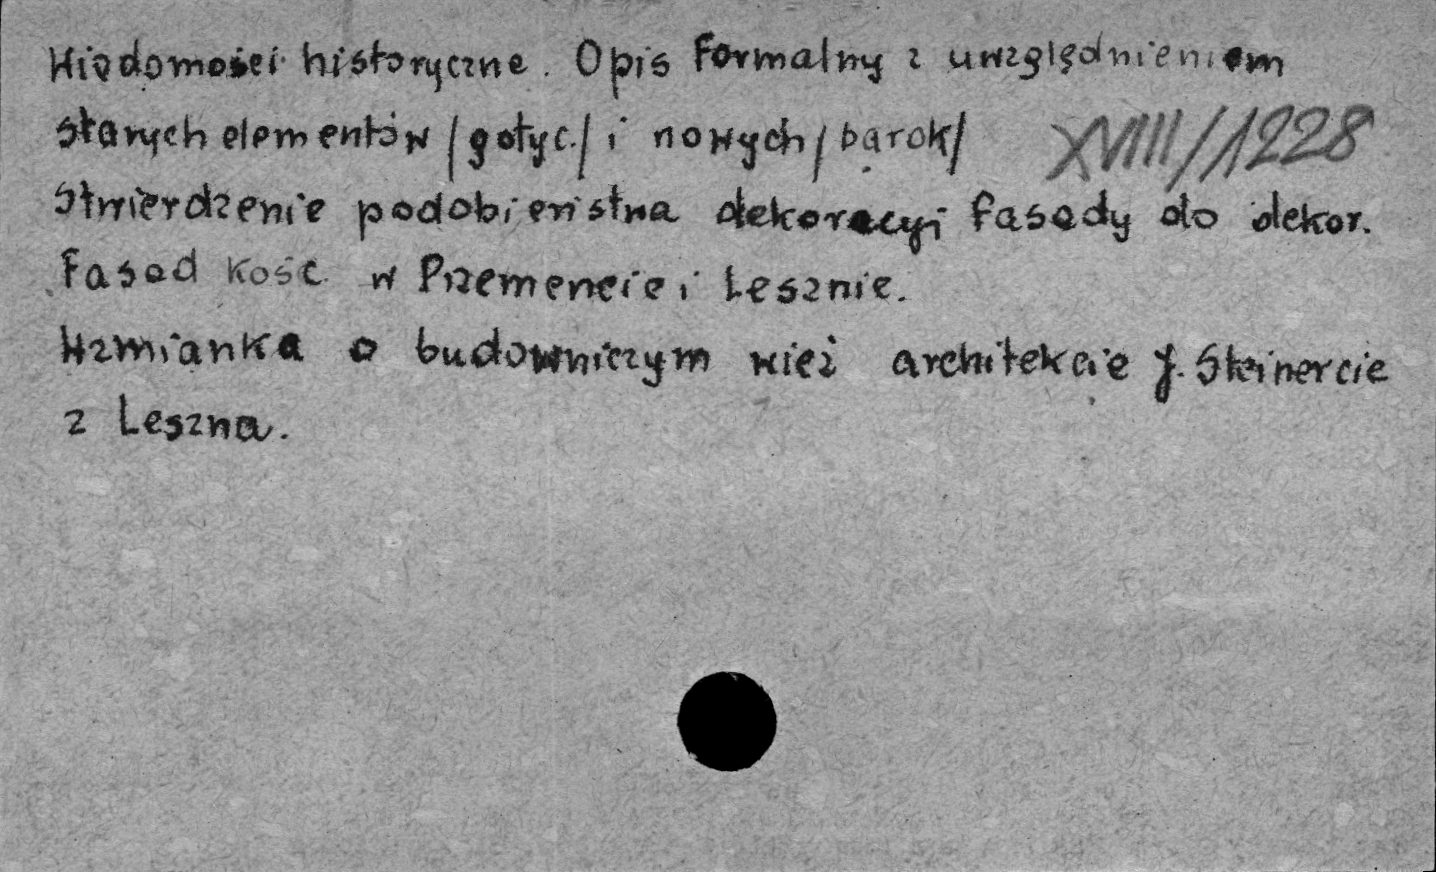 Wiadomości historyczne. Opis formalny z uwzględnieniem
starych elementów /gotyc./ i nowych /barok/ XVIII/1228
Stwierdzenie podobieństwa dekoracyi fasady do dekor.
fasad kość. w Przemencie i Lesznie.
Wzmianka o budowniczym wież architekcie J. Steinercie
z Leszna.